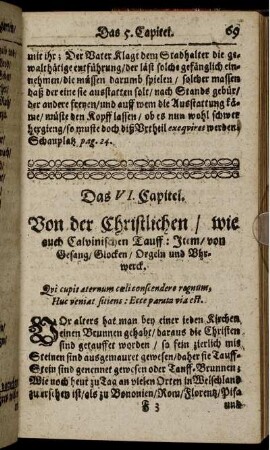 Das 5. Capitel. 69
mit ihr; Der Vater Klagt dem Stadhalter die ge-
walthätige entführung/ der läst solche gefänglich ein-
nehmen/ die müssen darumb spielen / solcher massen
daß der eine sie ausstatten solt/ nach Stands gebür/
der andere freyen/ und auff wem die Ausstattung kä-
me/ müste den Kopff lassen / ob es nun wohl schwer
hergieng/ so muste doch diß Vrtheil exeqviret werden.
Schauplatz pag. 24.
Das VI. Capitel.
Von der Christlichen / wie
auch Calvinischen Tauff: Item/ von
Gesang/ Glocken / Orgeln und Uhr-
werck.
Qvi cupit æternum cæli conscendere regnum,
Huc veniat sitiens: Ecce parata via est.
VOr alters hat man bey einer jeden Kirchen
einen Brunnen gehabt/ daraus die Christen
sind getauffet worden / so fein zierlich mit
Steinen sind ausgemauret gewesen/ daher sie Tauff-
Stein sind genennet gewesen oder Tauff-Brunnen;
Wie noch heut zu Tag an vielen Orten in Welschland
zu ersehen ist/ als zu Bononien/ Rom/ Florentz/ Pisa
F 3 und